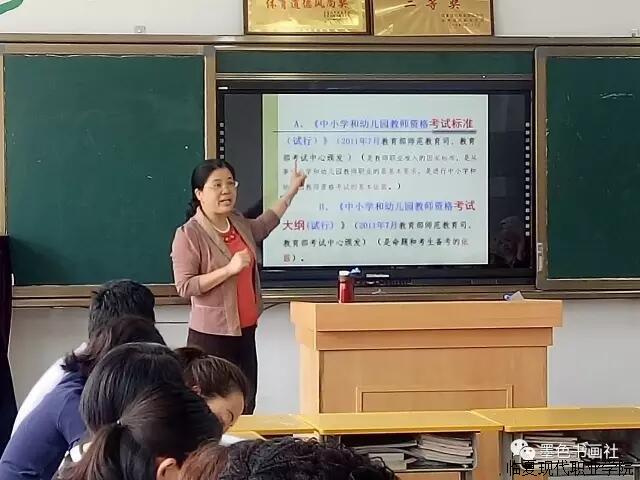 体育道德风尚奖
二等奖
A、《中小学和幼儿园教师资格考试标准
（试行）》（2011年7月教育部师范教育司、教育
部考试中心颁发）（是教师职业准入的国家标准，是从
事中小学和幼儿园教师职业的最基本要求，是进行中小学和
幼儿园教师资格考试的基本依据。）
B、《中小学和幼儿园教师资格考试
大纲(试行)》（2011年7月教育部师范教育司、
教育部考试中心颁发）（是命题和考生备考的依
据）。
墨色书画社
临夏现代职业学院